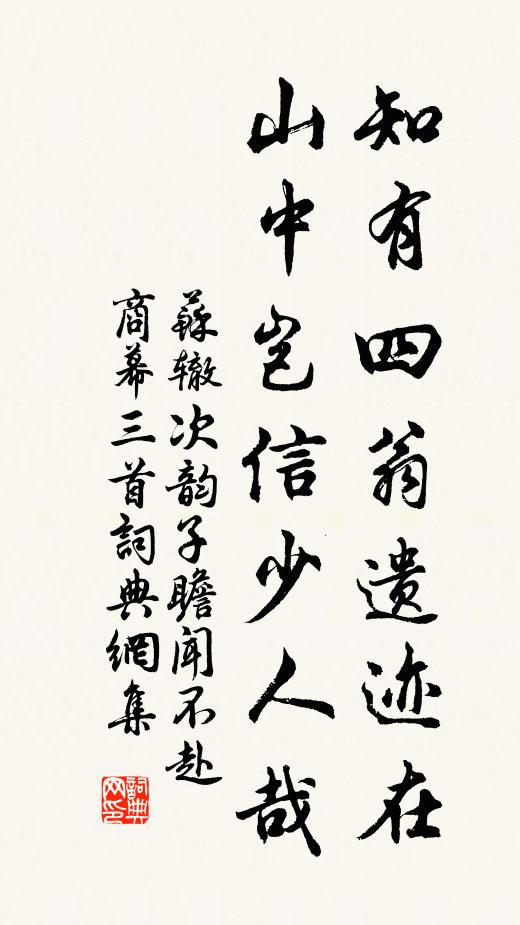 知有四翁遗迹在
山中岂信少人哉
蘇辙次韵子瞻闻不赴
商幕三首詞典網集
詞典网印